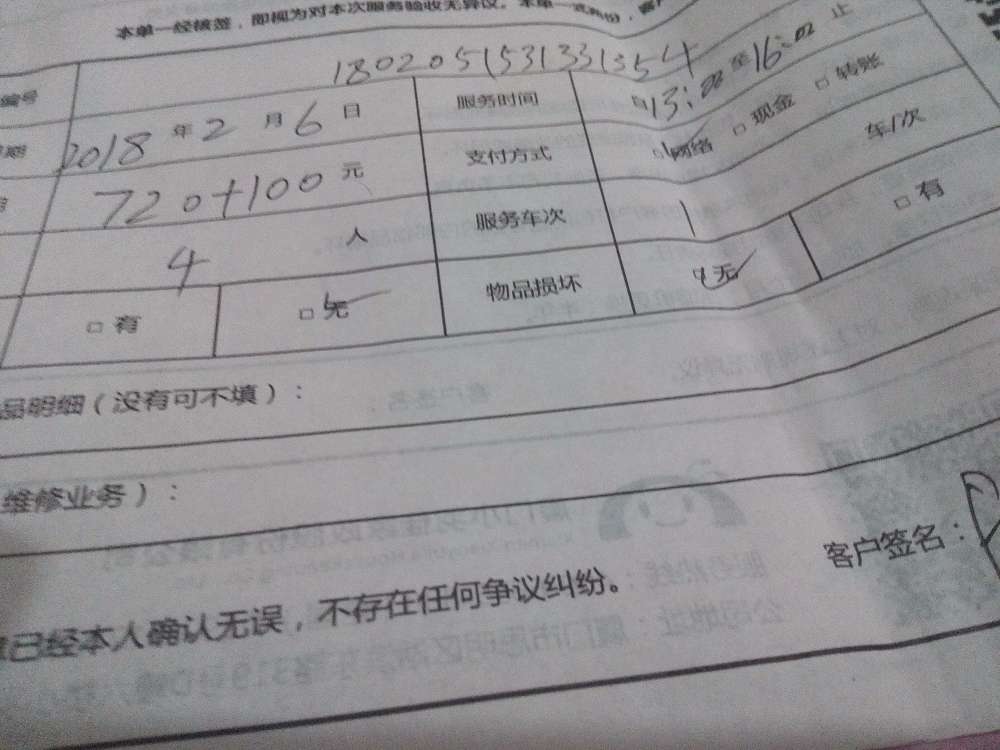 本单一经核签，即视为对本次服务验收无异议。本单一式两份，
编号 1802051531331354
2018年2月6日 服务时间 自13:00至16:00止
720+100元 支付方式 □网络 □现金 □转账
4人 服务车次 1 车/次
□有 □无 物品损坏 □无 □有
品明细（没有可不填）：
维修业务）：
已经本人确认无误，不存在任何争议纠纷。
客户签名：